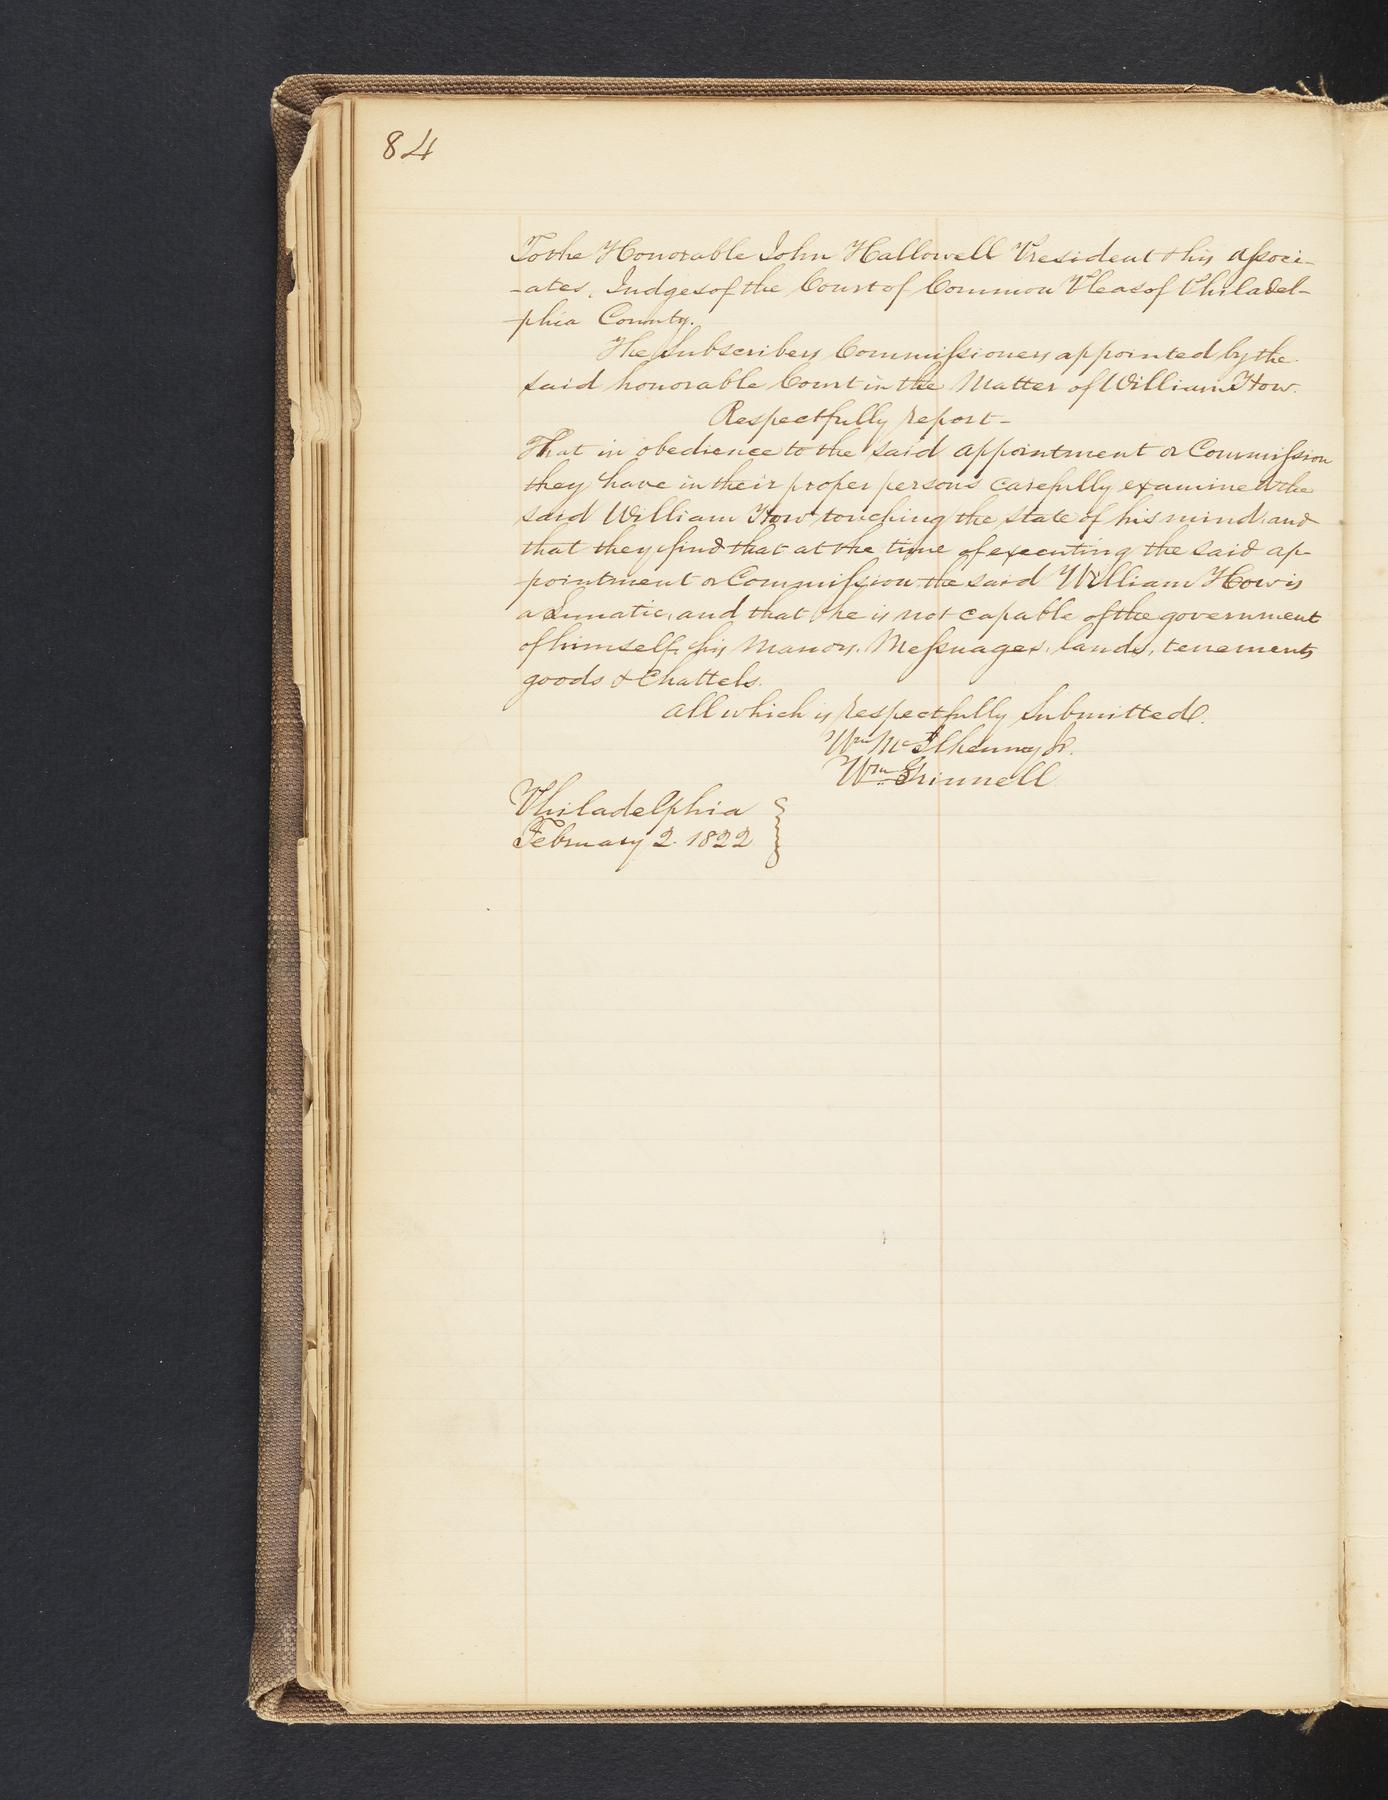 84
To the Honorable John Hallowell President & his associ-
-ates, Judges of the Court of Common Pleas of Philadel-
-phia County.
The Subscribers Commissioners appointed by the
said honorable Court in the Matter of William How.
Respectfully report-
That in obedience to the said appointment or Commission
they have in their proper persons carefully examined the
said William How touching the state of his mind, and
that they find that at the time of executing the said ap-
pointment or Commission the said William How is
a Lunatic, and that he is not capable of the government
of himself, his Manors, Messuages, lands, tenements
goods & Chattels.
All which is respectfully Submitted.
Wm McIlhenny Jr.
Wm Grinnell
Philadelphia
February 2. 1822